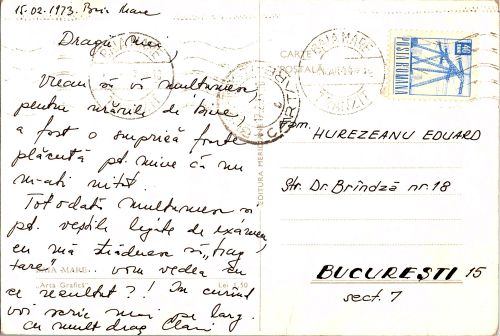 15.02.1973. Baia Mare
Dragii mei,
Vreau să vă mulțumesc
pentru urările de bine,
a fost o surpriză foarte
plăcută pt. mine că nu
m-ați uitat.
Tot odată mulțumesc și
pt. veștile legate de examen,
eu mă străduesc și "trag
tare" vom vedea cu
ce rezultat?! In curînd
voi scrie mai pe larg.
Cu mult drag Clari
BAIA MARE
"Arta Grafică"
Lei 1,50
EDITURA MERIDIANE
CARTE
POSTALĂ
BAIA MARE
BAIA MARE
CARTARE
POSTA ROMANA
Fam.
HUREZEANU EDUARD
Str. Dr. Brîndză nr. 18
BUCUREȘTI 15
sect. 7